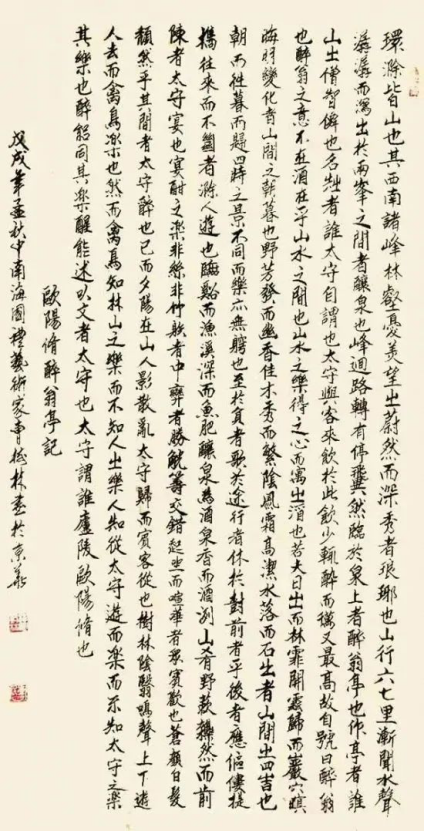 環滁皆山也其西南諸峰林壑憂美望之蔚然而深秀者琅琊也山行六七里漸聞水聲
潺潺而瀉出於兩峯之間者釀泉也峰迴路轉有停翼然臨於泉上者醉翁亭也作亭者誰
山之僧智僊也名之者誰太守自謂也太守與客來飲於此飲少輒醉而年又最高故自號曰醉翁
也醉翁之意不在酒在乎山水之間也山水之樂得之心而寓之酒也若夫日出而林霏開雲歸而巖穴暝
晦明變化者山間之朝暮也野芳發而幽香佳木秀而繁陰風霜高潔水落而石出者山間之四時也
朝而往暮而歸四時之景不同而樂亦無窮也至於負者歌於途行者休於樹前者乎後者應傴僂提
攜往來而不絕者滁人遊也臨谿而漁溪深而魚肥釀泉為酒泉香而酒洌山肴野蔌雜然而前
陳者太守宴也宴酣之樂非絲非竹射者中弈者勝觥籌交錯起坐而喧譁者眾賓歡也蒼顏白髮
頹然乎其間者太守醉也已而夕陽在山人影散亂太守歸而賓客從也樹林陰翳鳴聲上下遊
人去而禽鳥樂也然而禽鳥知林山之樂而不知人之樂人知從太守遊而樂而不知太守之樂
其樂也醉能同其樂醒能述以文者太守也太守謂誰廬陵歐陽脩也
歐陽脩醉翁亭記
戊戌年孟秋中南海國禮藝術家曹松林書於京華